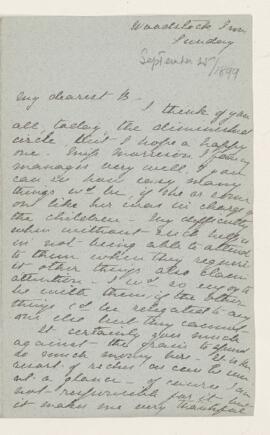 Woodstock Inn
Sunday
September 25/1899
My dearest B.
I think of you
all today the diminished
circle, but I hope a happy
one. Miss Morrison I fancy
manages very well, & you
can see how easy many
things wd. be, if she as some
one like her was in charge of
the children - My difficulty
when without such help is
in not being able to attend
to them when they require
it other things also claim
attention. I wd. so enjoy to
be with them, if the other
things cd. be relegated to any
one else but they cannot.
It certainly goes much
against the grain to spend
so much money here - It is the
resort of riches as can be seen
at a glance - of course I am
not responsible for it - but
it makes me very thankful